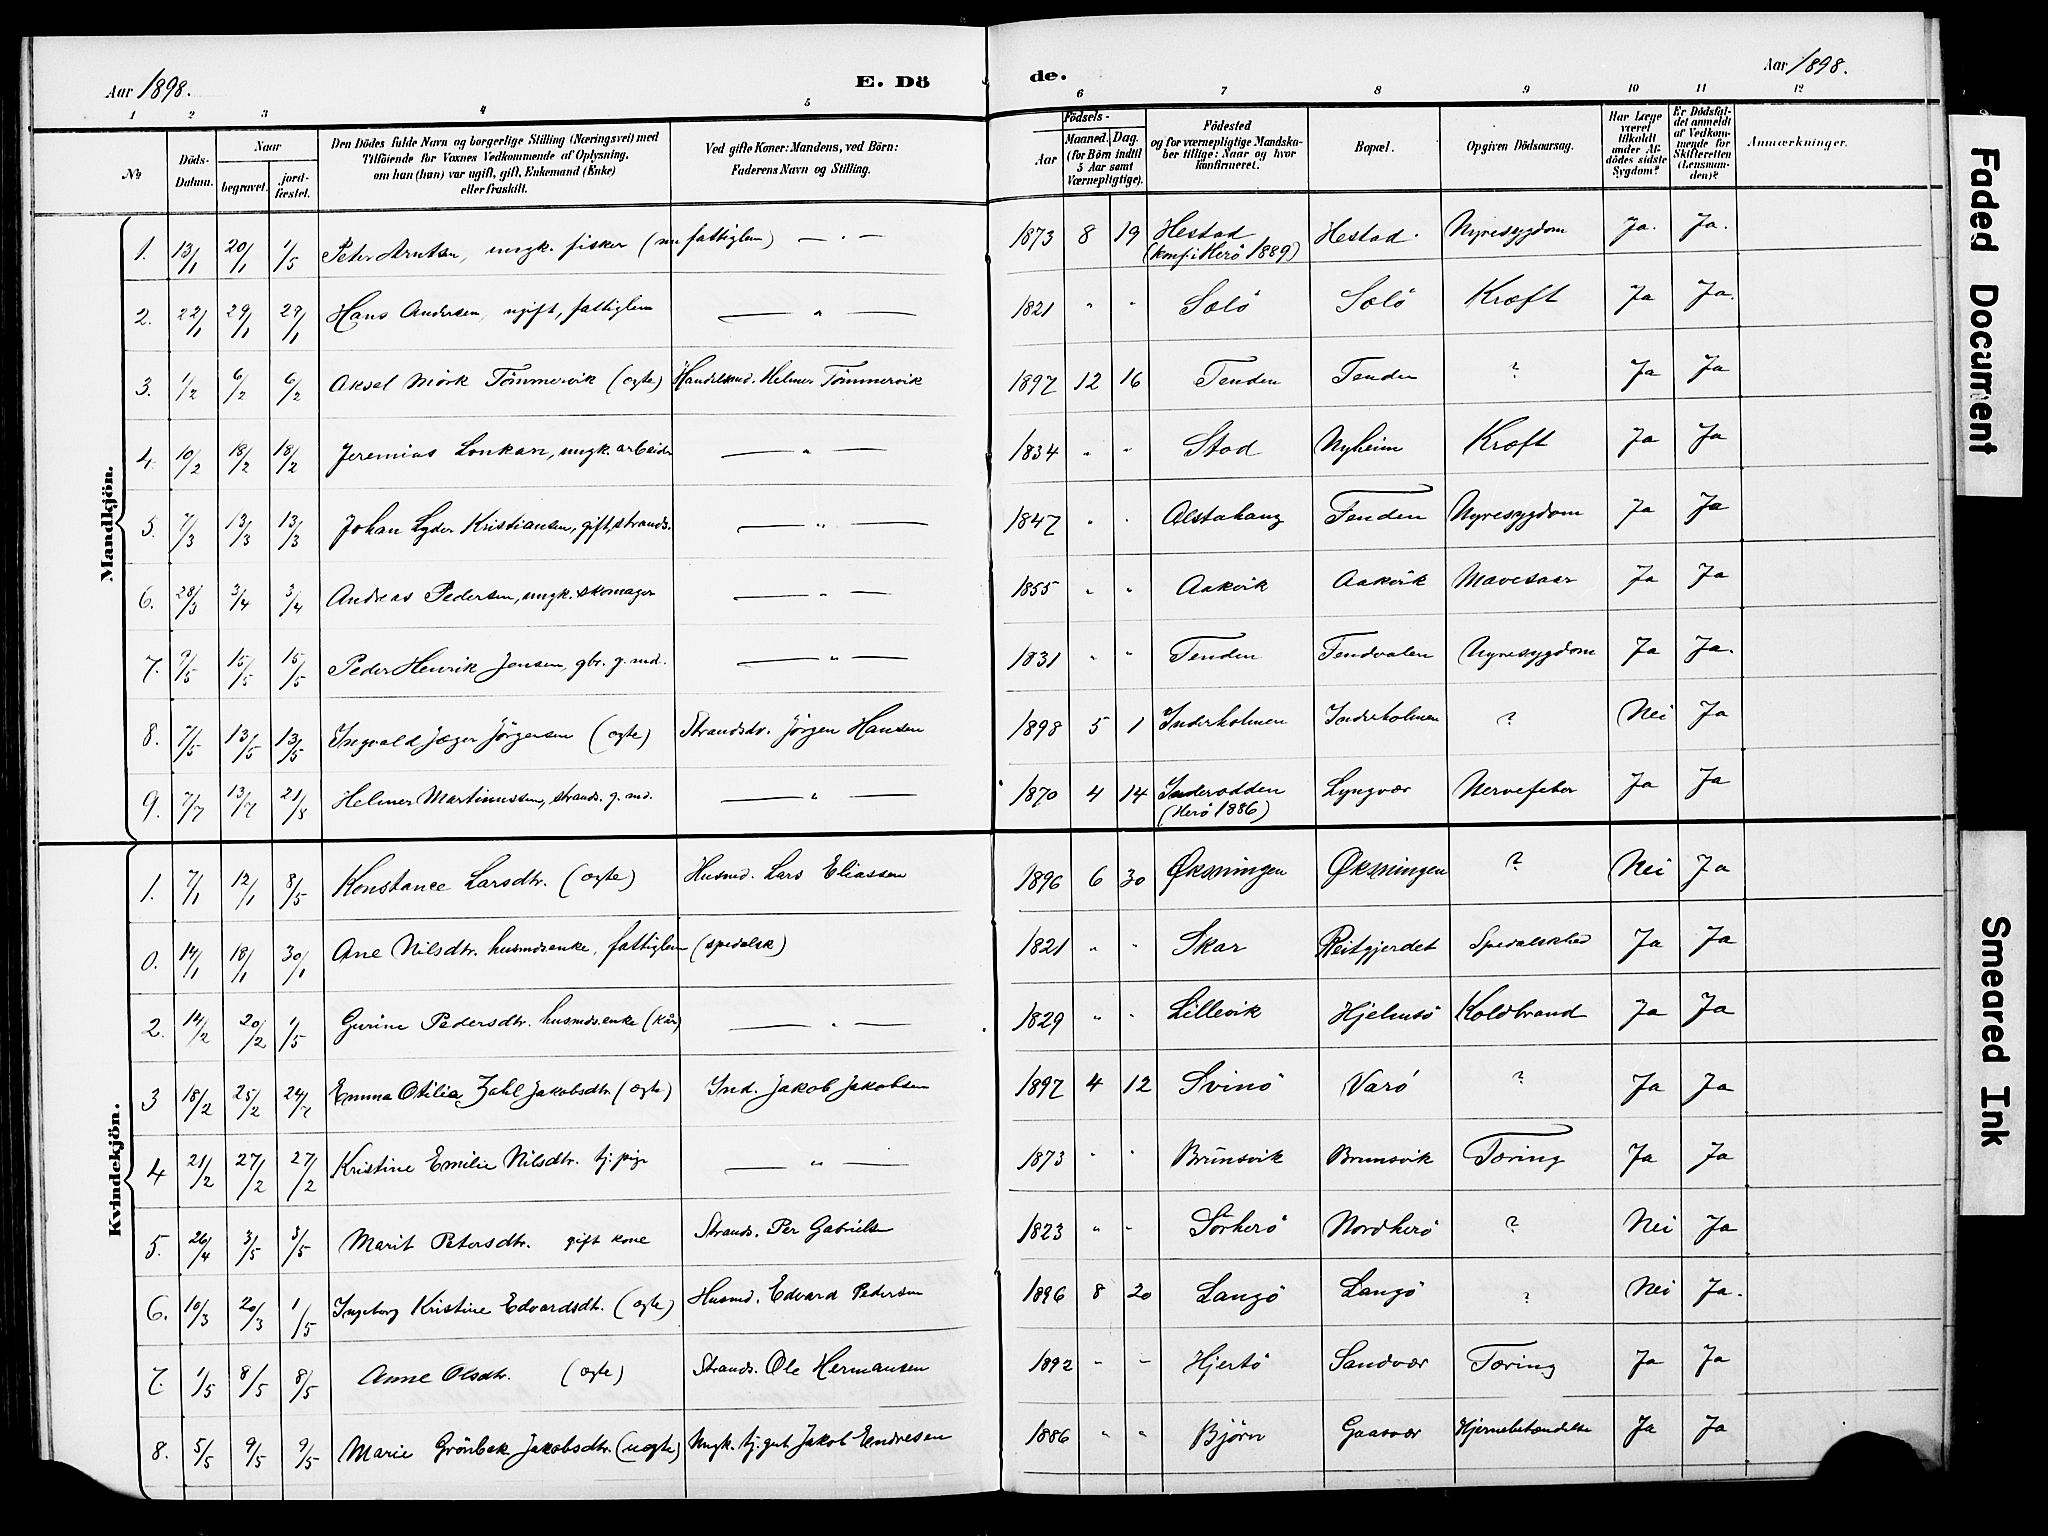 Aar 1898. E. Dö de. Aar 1898.
1 2 3 4 5 6 7 8 9 10 11 12
No Döds-Datum. Naar begravet. jordfæstet. Den Dödes fulde Navn og borgerlige Stilling (Næringsvei) med Tilföiende for Voxnes Vedkommende af Oplysning, om han (hun) var ugift, gift, Enkemand (Enke) eller fraskilt. Ved gifte Koner: Mandens, ved Börn: Faderens Navn og Stilling. Födsels- Aar Maaned. Dag. (for Börn indtil 5 Aar samt Værnepligtige). Födested og for værnepligtige Mandskaber tillige: Naar og hvor konfirmeret. Bopæl. Opgiven Dödsaarsag. Har Læge været tilkaldt under Afdödes sidste Sygdom? Er Dödsfaldet anmeldt af Vedkommende for Skifteretten (Lensmanden)? Anmærkninger.
Mandkjön.
1. 13/1 20/1 1/5 Peter Arntsen, ungk. fisker (nu fattiglem) — " — 1873 8 19 Hestad (konf. i Herö 1889) Hestad. Nyresygdom Ja. Ja.
2. 22/1 29/1 29/1 Hans Andersen, ugift, fattiglem — " — 1821 " " Sælö Sælö Kræft Ja Ja.
3. 1/2 6/2 6/2 Aksel Mörk Tömmervik (ægte) Handelsmd. Helmer Tömmervik 1897 12 16 Tenden Tenden ? Ja Ja
4. 10/2 18/2 18/2 Jeremias Lonkan, ungk. arbeider — " — 1834 " " Stod Nyheim Kræft Ja Ja
5. 7/3 13/3 13/3 Johan Lyder Kristiansen, gift, strands. — " — 1847 " " Alstahaug Tenden Nyresygdom Ja Ja
6. 28/3 3/4 3/4 Andreas Pedersen, ungk. skomager — " — 1855 " " Aakvik Aakvik Mavesaar Ja Ja
7. ?/5 15/5 15/5 Peder Henrik Jensen, gbr. g. md. — " — 1831 " " Tenden Tendvalen Nyresygdom Ja Ja.
8. 7/5 13/5 13/5 Ingvald Jæger Jörgensen (ægte) Strandsdr. Jörgen Hansen 1898 5 1 Inderholmen Inderholmen ? Nei Ja
9. 7/7 13/7 21/8 Helmer Martinussen, strands. g. md. — " — 1870 4 14 Inderodden (Herö 1886) Lyngvær Nervefeber Ja Ja
Kvindekjön.
1. 7/1 12/1 8/5 Konstance Larsdtr. (ægte) Husmd. Lars Eliassen 1896 6 30 Øksningen Øksningen ? Nei Ja
0. 14/1 18/1 30/1 Ane Nilsdtr. husmdsenke, fattiglem (spedalsk) 1821 " " Skar Reitgjerdet Spedalskhed Ja Ja
2. 14/2 20/2 1/5 Gurine Pedersdtr. husmdsenke (kår) — " — 1829 " " Lillevik Hjelmsö Koldbrand Ja Ja
3 18/2 25/2 24/7 Emma Otilia Zahl Jakobsdtr. (ægte) Ind. Jakob Jakobsen 1897 4 12 Svinö Varö ? Ja Ja
4 21/2 27/2 27/2 Kristine Emilie Nilsdtr. tj. pige — " — 1873 " " Brunsvik Brunsvik Tæring Ja Ja
5. 26/4 3/5 3/5 Marit Petersdtr. gift kone Strands. Per Gabrielsen 1823 " " Sörherö Nordherö ? Nei Ja
6. 10/3 20/3 1/5 Ingeborg Kristine Edvardsdt. (ægte) Husmd. Edvard Pedersen 1896 8 20 Langö Langö ? Nei Ja.
7. 1/5 8/5 8/5 Anne Olsdtr. (ægte) Strands. Ole Hermansen 1892 " " Hjertö Sandvær Tæring Ja Ja
8. 5/5 9/5 9/5 Marie Grönbek Jakobsdtr. (uægte) Ungk. tj. gut Jakob Endresen 1886 " " Björn Gaasvær Hjernebetændelse Ja Ja
Faded Document
Smeared Ink